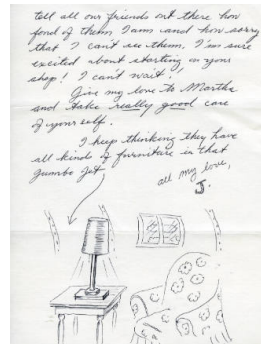 tell all our friends out there how
fond of them I am and how sorry
that I can't see them. I'm sure
excited about starting in your
shop! I can't wait!
Give my love to Martha
and take really good care
of yourself.
I keep thinking they have
all kinds of furniture in that
Jumbo Jet.
all my love,
J.